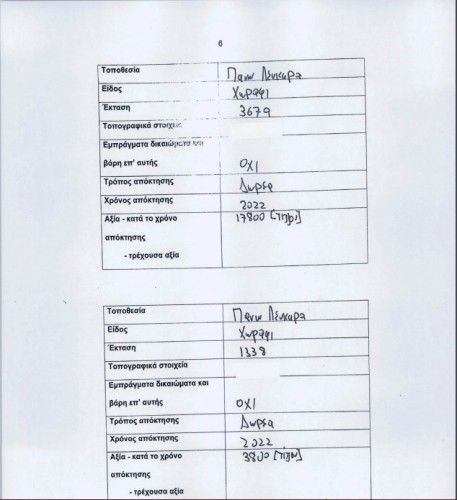 6
Τοποθεσία Πανω Λευκαρα
Είδος Χωραφι
Έκταση 3679
Τοπογραφικά στοιχεία
Εμπράγματα δικαιώματα και
βάρη επ' αυτής ΟΧΙ
Τρόπος απόκτησης Δωρεα
Χρόνος απόκτησης 2022
Αξία - κατά το χρόνο 17800
απόκτησης
- τρέχουσα αξία
Τοποθεσία Πανω Λευκαρα
Είδος Χωραφι
Έκταση 1338
Τοπογραφικά στοιχεία
Εμπράγματα δικαιώματα και
βάρη επ' αυτής ΟΧΙ
Τρόπος απόκτησης Δωρεα
Χρόνος απόκτησης 2022
Αξία - κατά το χρόνο 3800
απόκτησης
- τρέχουσα αξία